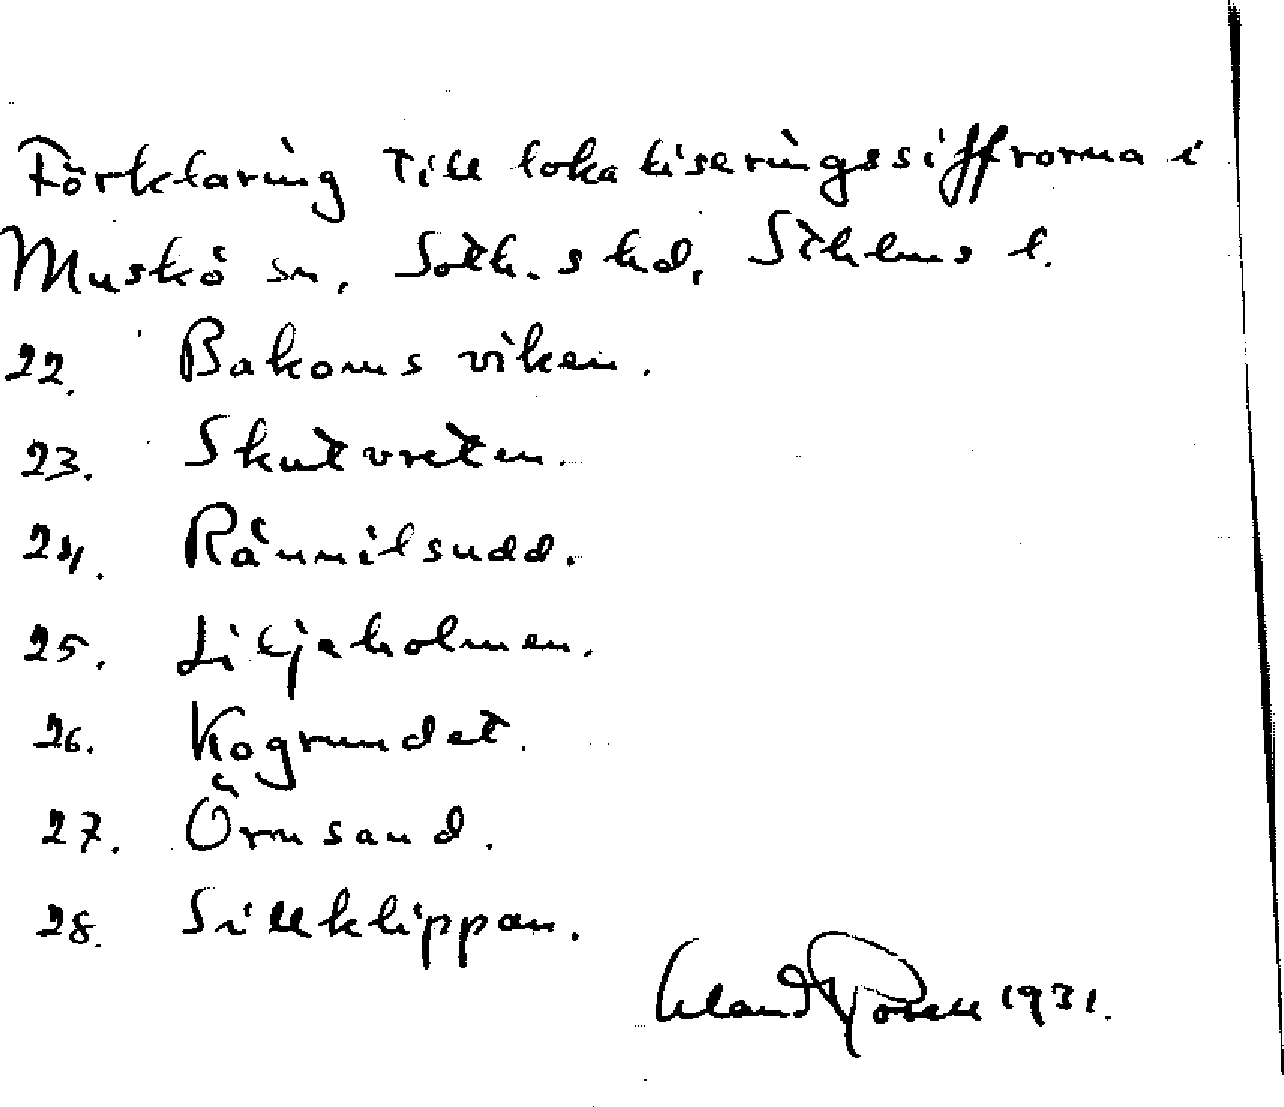 Förklaring till lokaliseringssiffrorna i
Muskö sn, Soth. s hd, Sthlms l.
22. Bakoms viken.
23. Skutvreten.
24. Rännilsudd.
25. Liljeholmen.
26. Kogrundet.
27. Örnsand.
28. Sillklippan.
1931.